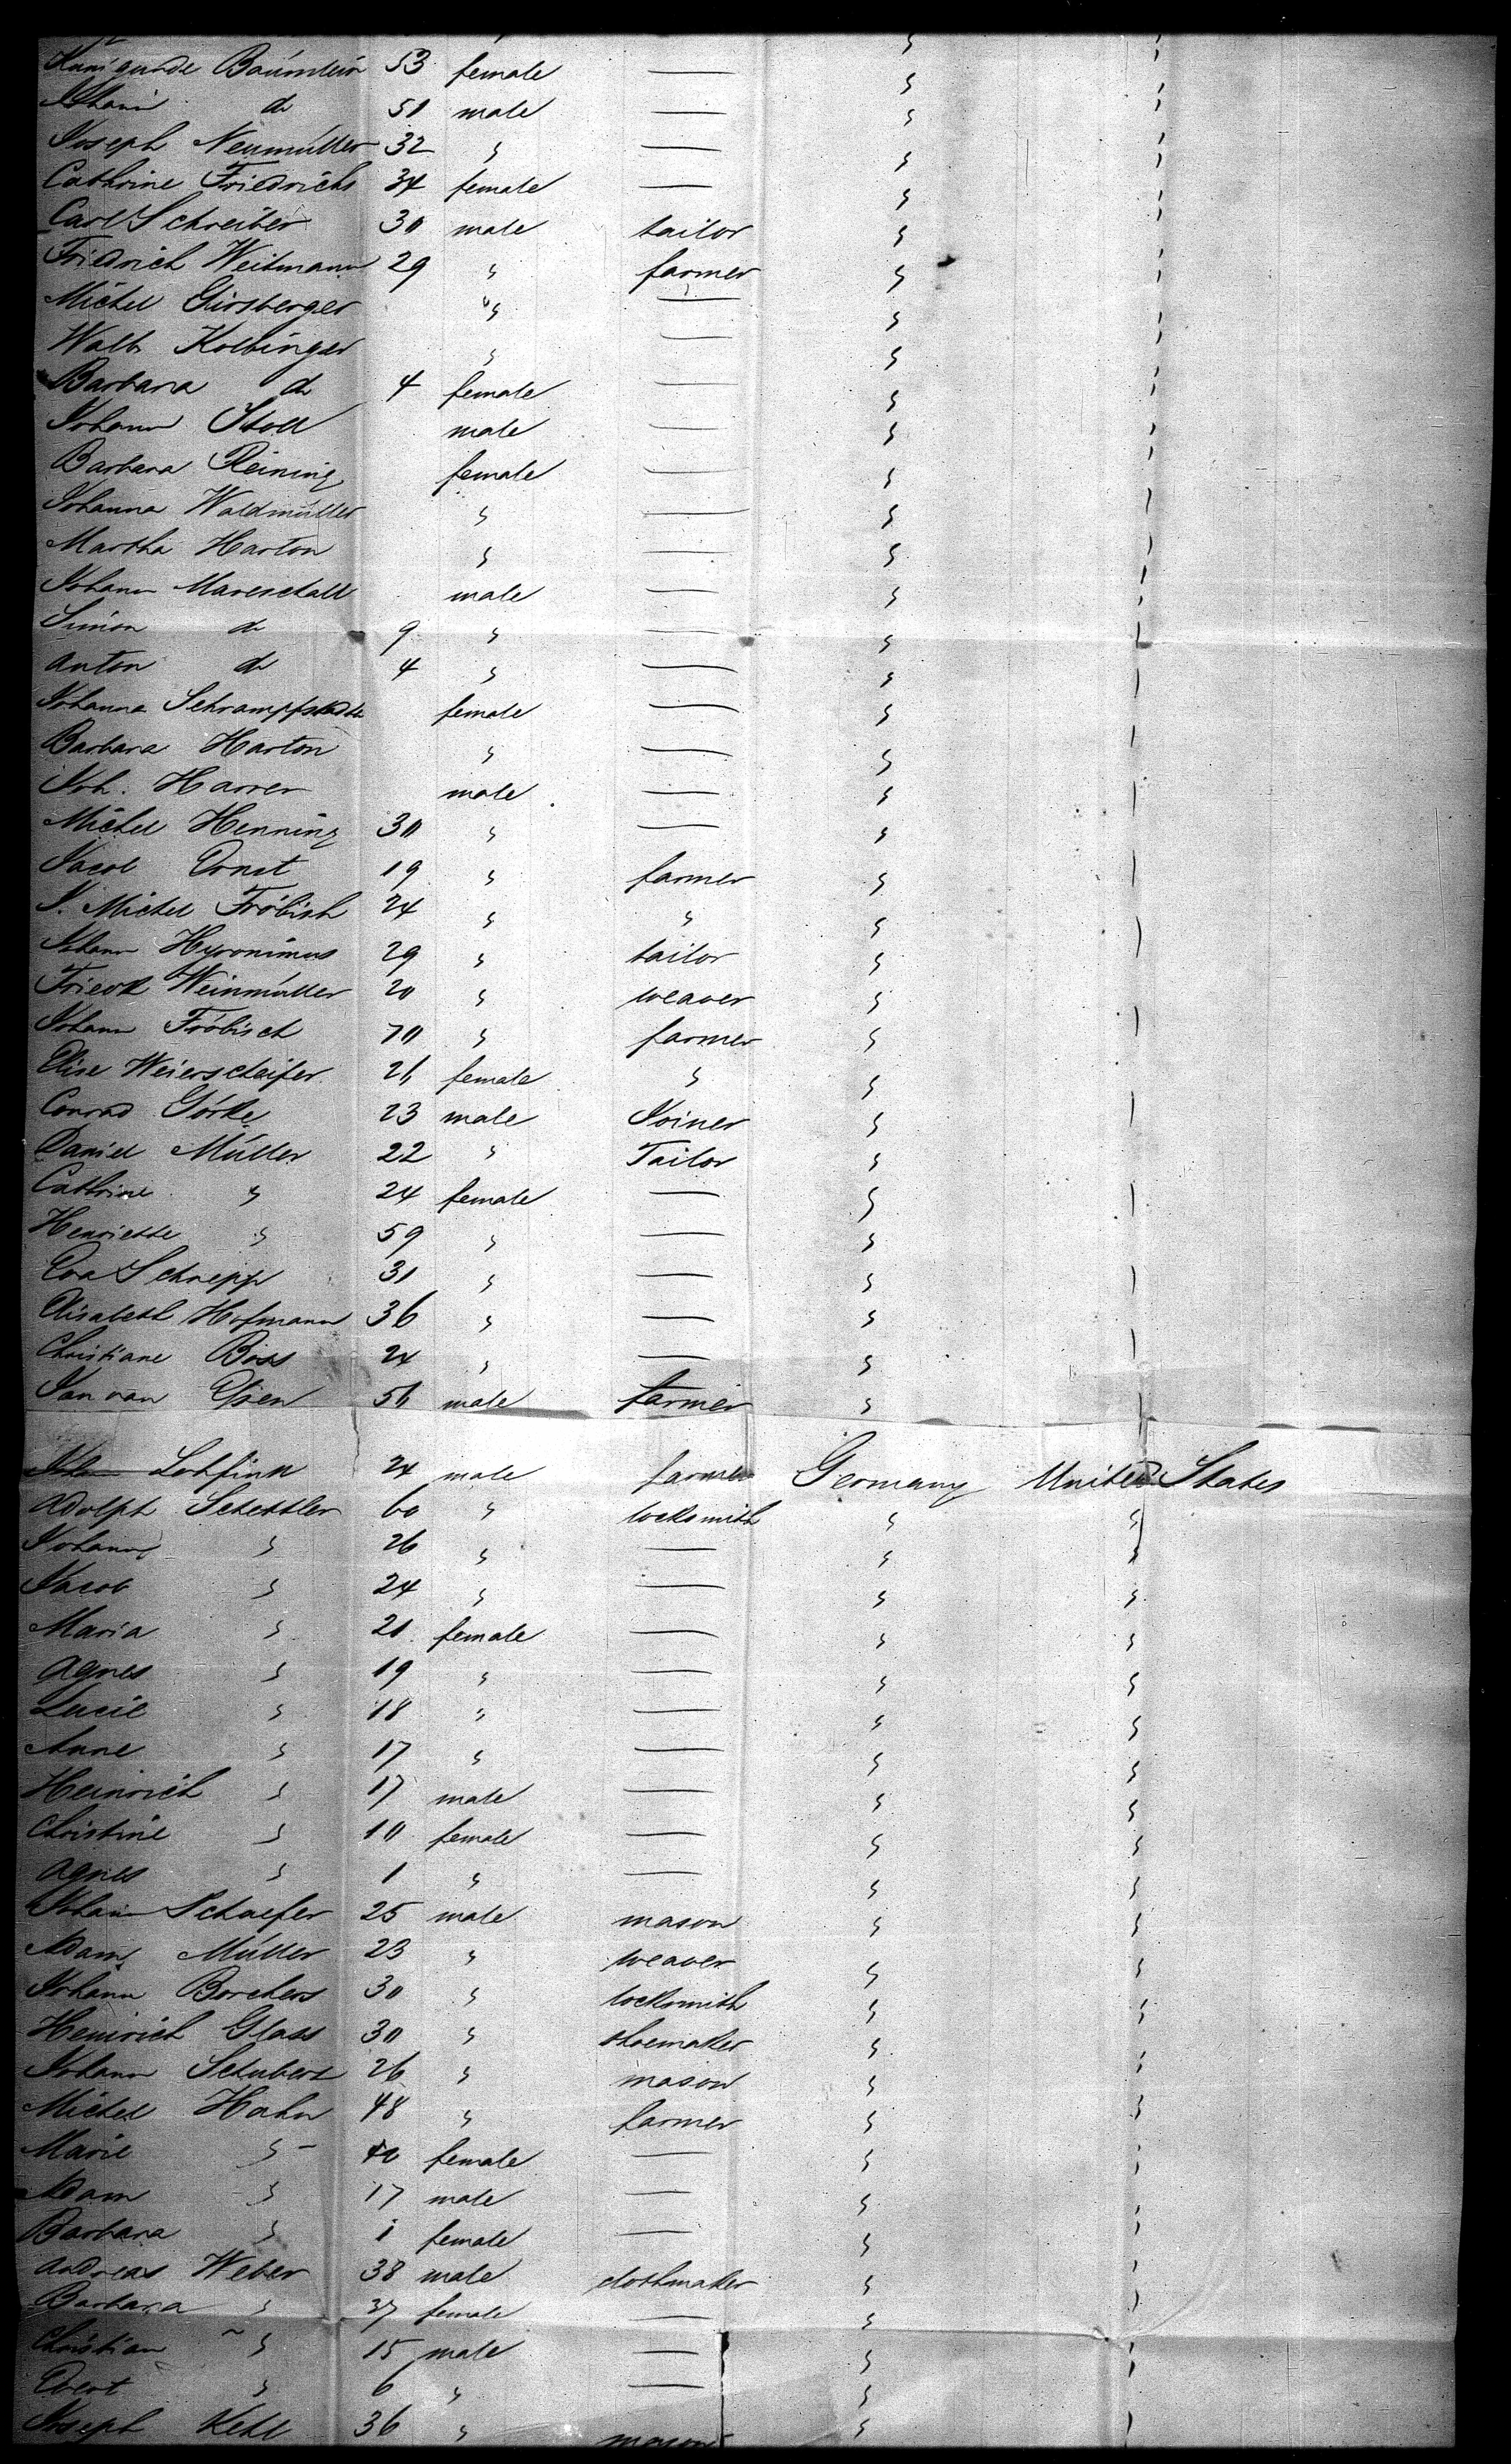 Kunigunde Bäumlein 53 female —— "
Johann do 51 male —— "
Joseph Neumüller 32 " —— "
Cathrine Friedrichs 34 female —— "
Carl Schreiber 30 male tailor "
Friedrich Weitmann 29 " farmer "
Michel Girsberger " —— "
Walb. Kolbinger " —— "
Barbara do 4 female —— "
Johann Stoll male —— "
Barbara Reining female —— "
Johanna Waldmüller " —— "
Martha Harton " —— "
Johann Mareschall male —— "
Simon do 9 " —— "
Anton do 4 " —— "
Johanna female —— "
Barbara Harton " —— "
Joh. Harrer male —— "
Michel Henning 30 " —— "
Jacob Ernst 19 " farmer "
J. Michel Fröbish 24 " " "
Johann Hyronimus 29 " tailor "
Friedr Weinmüller 20 " weaver "
Johann Fröbisch 70 " farmer "
Elise Weierscheifer 26 female " "
Conrad Görke 23 male Joiner "
Daniel Müller 22 " Tailor "
Cathrine " 24 female —— "
Henriette " 59 " —— "
Eva Schnepp 31 " —— "
Elisabeth Hofmann 36 " —— "
Christiane Böss 24 " —— "
Jan van 56 male farmer "
Lohfink 24 male farmer Germany United States
Adolph Schettler 60 " locksmith " "
Johann " 26 " —— " "
Jacob " 24 " —— " "
Maria " 21 female —— " "
Agnes " 19 " —— " "
Lucie " 18 " —— " "
Anne " 17 " —— " "
Heinrich " 17 male —— " "
Christine " 10 female —— " "
Agnes " 1 " —— " "
Johann Schaefer 25 male mason " "
Adam Müller 23 " weaver " "
Johann Borchers 30 " locksmith " "
Heinrich Glass 30 " shoemaker " "
Johann Schubert 26 " mason " "
Michel Hahn 48 " farmer " "
Marie " 40 female —— " "
Adam " 17 male —— " "
Barbara " 1 female —— " "
Andreas Weber 38 male clothmaker " "
Barbara " 37 female —— " "
Christian " 15 male —— " "
Evert " 6 " —— " "
Joseph Kehl 36 " mason " "